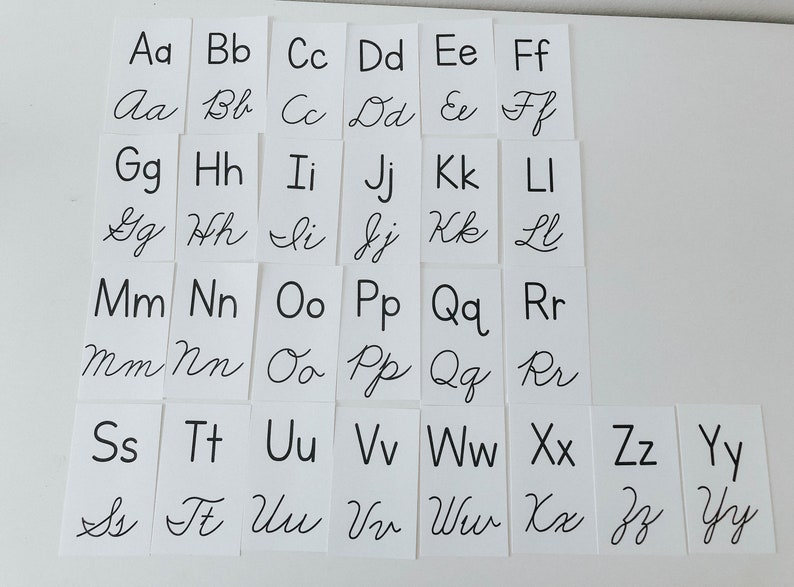 Aa Bb Cc Dd Ee Ff
Aa Bb Cc Dd Ee Ff
Gg Hh Ii Jj Kk Ll
Gg Hh Ii Jj Kk Ll
Mm Nn Oo Pp Qq Rr
Mm Nn Oo Pp Qq Rr
Ss Tt Uu Vv Ww Xx Zz Yy
Ss Tt Uu Vv Ww Xx Zz Yy